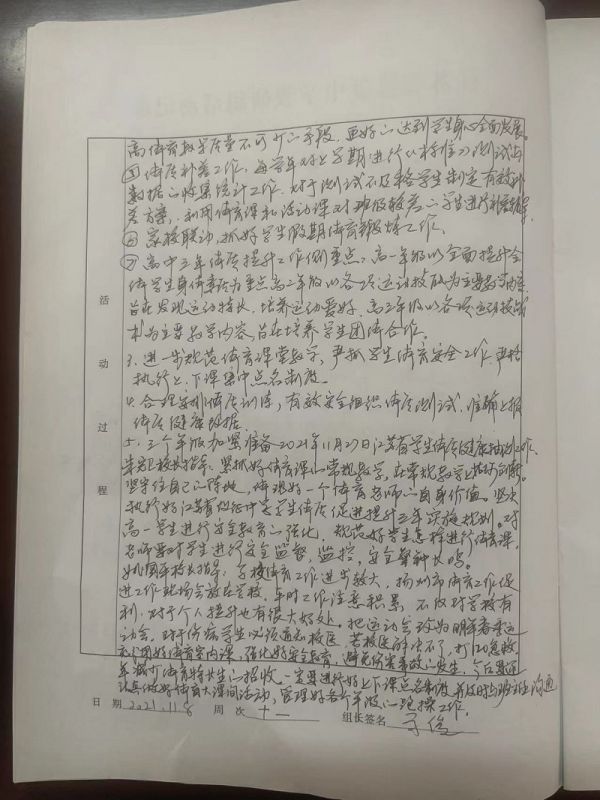 高体育教学质量不可少的手段，更好的达到学生身心全面发展。
⑤体质补差工作，每学年对上学期进行《标准》测试与
数据的收集统计工作，对于测试不及格学生制定有效补
差方案，利用体育课和活动课对班级较差的学生进行补差
⑥家校联动，抓好学生假期体育锻炼工作。
⑦高中三年体质提升工作侧重点，高一年级以全面提升全
体学生身体素质为重点高二年级以各项运动技能为主要教学内容
旨在发现运动特长，培养运动爱好，高三年级以各项运动技战
术为主要教学内容，旨在培养学生团体合作。
3、进一步规范体育课堂教学，严抓学生体育安全工作，严格
执行上、下课集中点名制度。
4、合理安排体质训练，有效安全组织体质测试，准确上报
体质健康数据。
5、三个年级加紧准备2021年11月27日江苏省学生体质健康抽测工作。
校长指导：紧抓好体育课的常规教学，在常规教学上
坚守住自己的阵地，体现好一个体育老师的自身价值。坚决
执行好江苏省 中学学生体质促进提升三年实施规划。对
高一学生进行安全教育的强化，规范好学生怎样进行体育课，
老师要对学生进行安全监督，监控，安全警钟长鸣。
校长指导：学校体育工作进步较大，扬州市体育工作促
进工作现场会放在学校，平时工作注意积累，不仅对学校有
利，对于个人提升也有很大好处。把运动会改为明年春季运
动会，对于伤病学生必须通知校医，若校医解决不了，打120急救，
利用好体育室内课，强化好安全教育，避免伤害事故的发生，今后要通
年减少体育特长生的招收，一定要进行好上下课点名制度，并及时与班主任沟通
认真做好体育大课间活动，管理好各个年级的跑操工作。
活动过程
日 期 2021.11.8 周 次 十一 组长签名